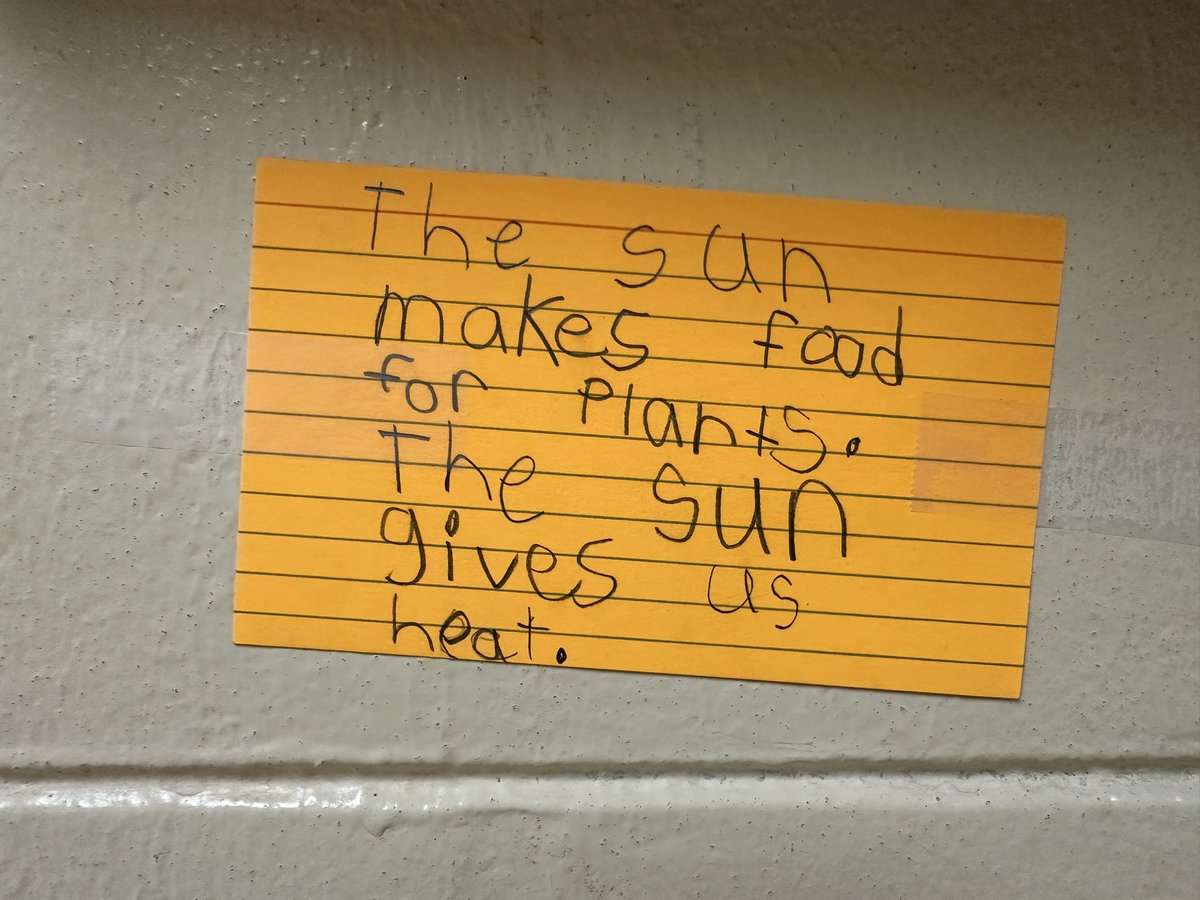 The sun
makes food
for Plants.
The sun
gives us
heat.